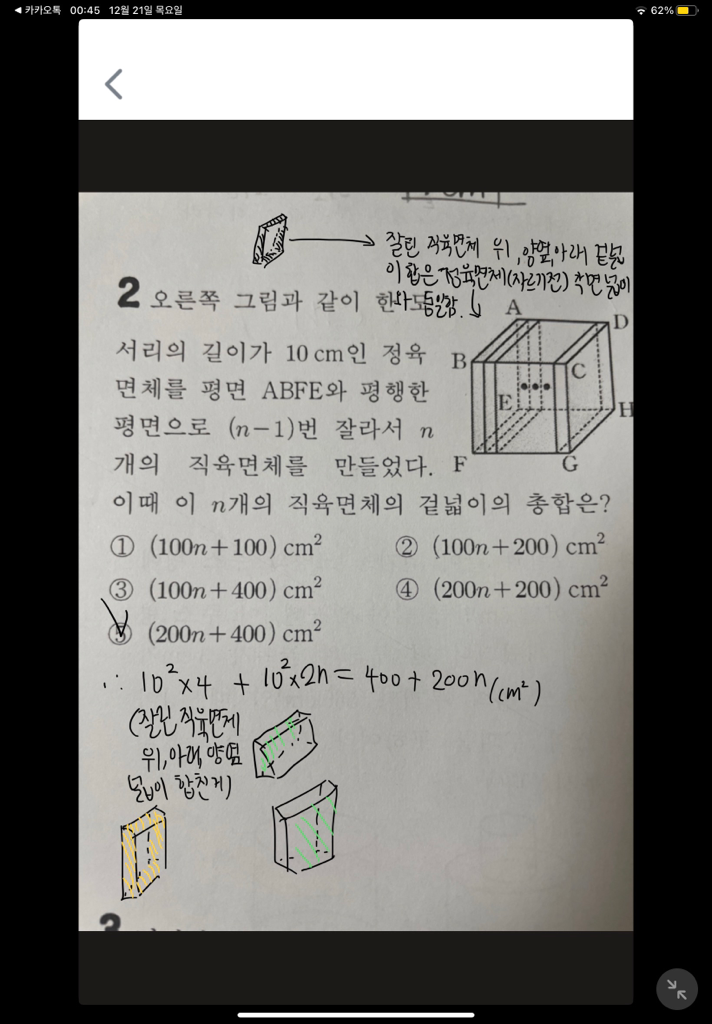 ◀ 카카오톡 00:45 12월 21일 목요일 62%
잘린 직육면체 위, 양옆, 아래 겉넓
이 합은 정육면체(자르기전) 측면 넓이
와 동일함.
2 오른쪽 그림과 같이 한 모
서리의 길이가 10 cm인 정육
면체를 평면 ABFE와 평행한
평면으로 (n-1)번 잘라서 n
개의 직육면체를 만들었다.
이때 이 n개의 직육면체의 겉넓이의 총합은?
A
D
B
C
E
H
F
G
① (100n+100) cm²
② (100n+200) cm²
③ (100n+400) cm²
④ (200n+200) cm²
⑤ (200n+400) cm²
∴ 10²×4 + 10²×2n = 400 + 200n (cm²)
(잘린 직육면체
위, 아래, 양옆
넓이 합친거)
3